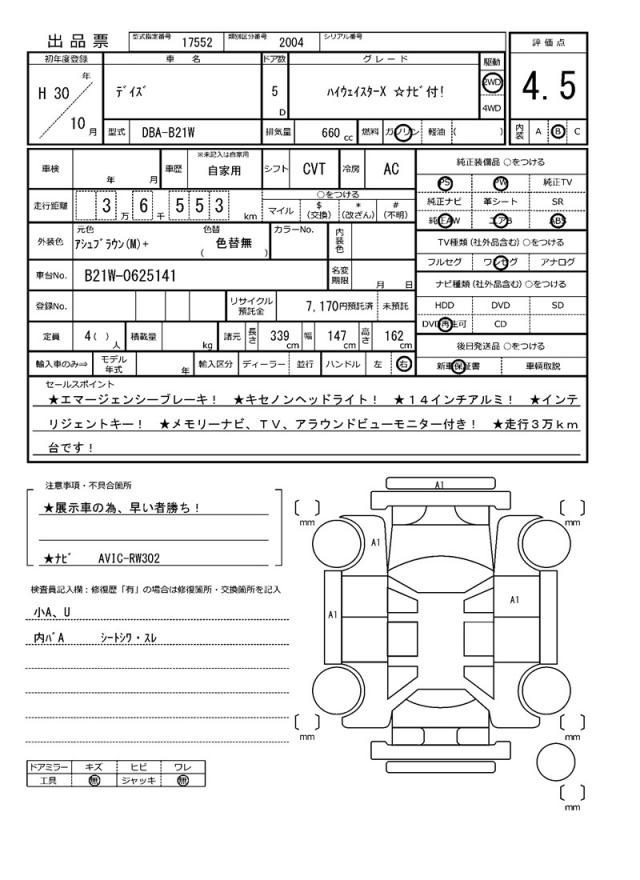 出品票 型式指定番号 17552 類別区分番号 2004 シリアル番号
評価点
4.5
内装 A B C
初年度登録 車名 ドア数 グレード 駆動
H 30 年 10 月
ﾃﾞｲｽﾞ 5 D ﾊｲｳｪｲｽﾀｰX ☆ﾅﾋﾞ付! 2WD
4WD
型式 DBA-B21W 排気量 660 cc 燃料 ガソリン 軽油 ( )
車検 年 月 車歴 ※未記入は自家用 自家用 シフト CVT 冷房 AC
走行距離 3 万 6 千 5 5 3 km
○をつける
マイル $ (交換) * (改ざん) # (不明)
外装色 元色 ｱｼｭﾌﾞﾗｳﾝ(M)+ 色替 ( 色替無 ) カラーNo. 内装色
車台No. B21W-0625141 名変期限 月 日
登録No. リサイクル預託金 7,170円預託済 未預託
定員 4( ) 人 積載量 kg 諸元 長さ 339 cm 幅 147 cm 高さ 162 cm
輸入車のみ⇒ モデル年式 年 輸入区分 ディーラー 並行 ハンドル 左 右
純正装備品 ○をつける
PS PW 純正TV
純正ナビ 革シート SR
純正AW エアB ABS
TV種類(社外品含む)○をつける
フルセグ ワンセグ アナログ
ナビ種類(社外品含む)○をつける
HDD DVD SD
DVD再生可 CD
後日発送品 ○をつける
新車保証書 車輌取説
セールスポイント
★エマージェンシーブレーキ！ ★キセノンヘッドライト！ ★１４インチアルミ！ ★インテ
リジェントキー！ ★メモリーナビ、ＴＶ、アラウンドビューモニター付き！ ★走行３万ｋｍ
台です！
注意事項・不具合箇所
★展示車の為、早い者勝ち！
★ﾅﾋﾞ AVIC-RW302
検査員記入欄：修復歴「有」の場合は修復箇所・交換箇所を記入
小A、U
内ﾊﾞA ｼｰﾄｼﾜ・ｽﾚ
ドアミラー キズ ヒビ ワレ
工具 無 ジャッキ 無
A1
[ ] mm
[ ] mm
A1
A1
A1
[ ] mm
[ ] mm
[ ] mm